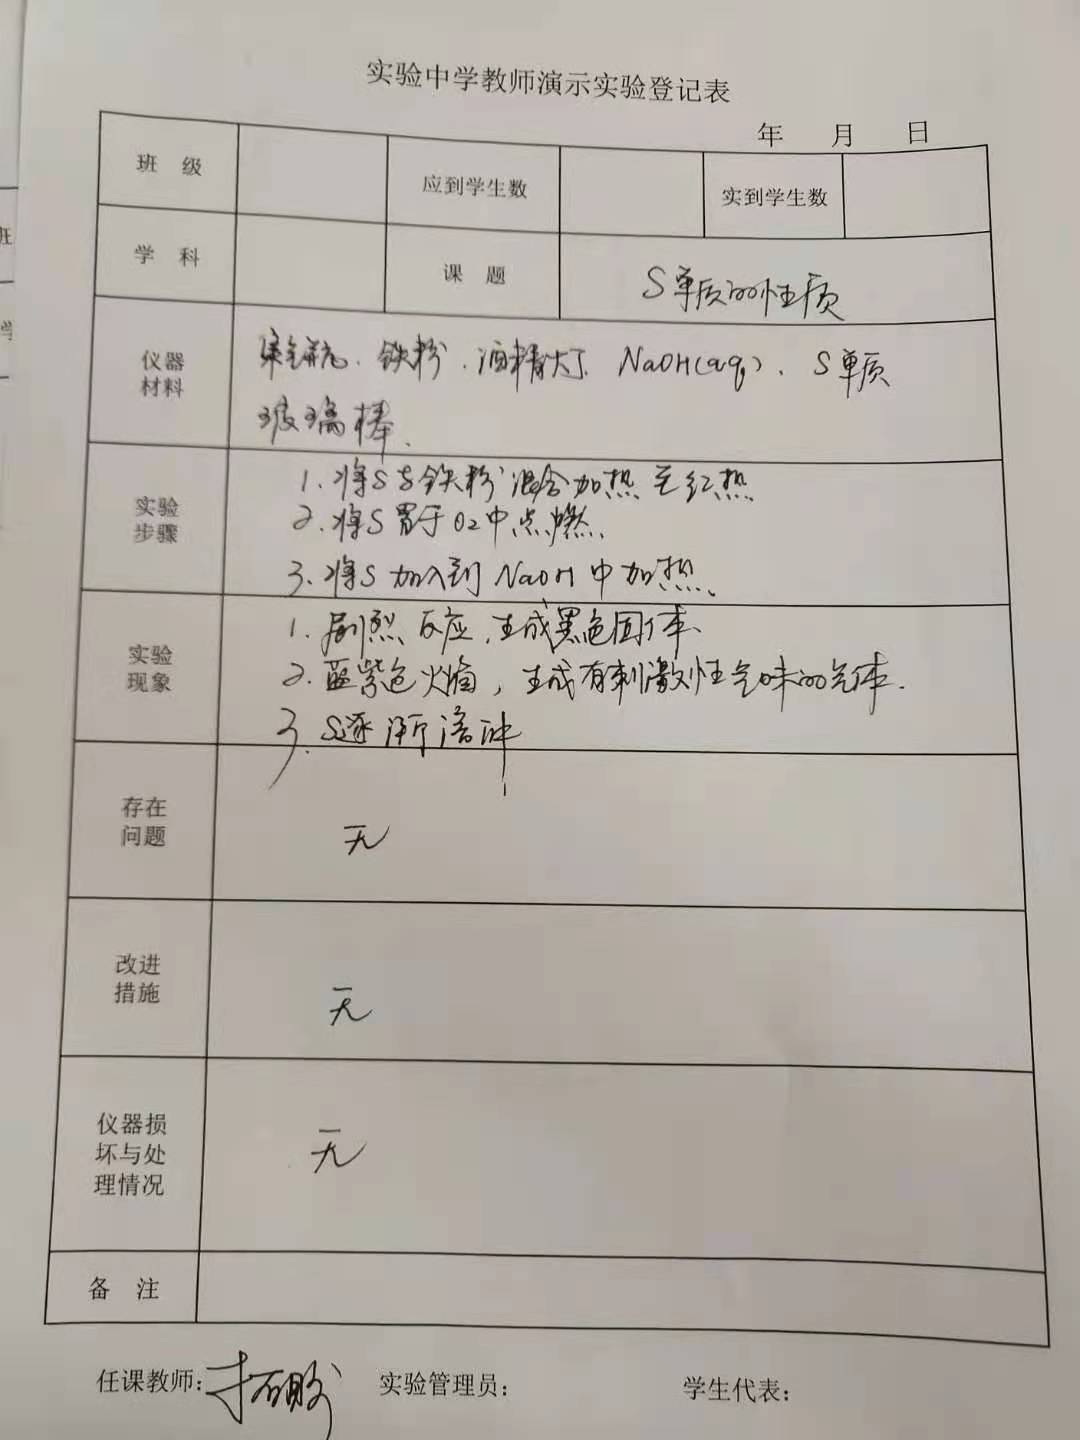 实验中学教师演示实验登记表
年 月 日
班 级 应到学生数 实到学生数
学 科 课 题 S单质的性质
仪器
材料
集气瓶、铁粉、酒精灯、NaOH(aq)、S单质
玻璃棒.
实验
步骤
1. 将S与铁粉混合加热至红热
2. 将S置于O2中点燃.
3. 将S加入到NaOH中加热.
实验
现象
1. 剧烈反应,生成黑色固体.
2. 蓝紫色火焰,生成有刺激性气味的气体.
3. S逐渐溶
存在
问题
无
改进
措施
无
仪器损
坏与处
理情况
无
备 注
任课教师: 实验管理员: 学生代表: